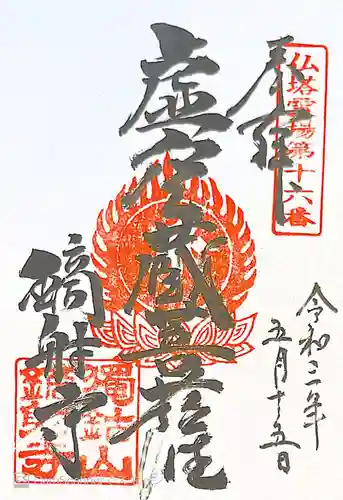 奉拝
仏塔霊場第十六番
虚空蔵菩薩
鏑射寺
獨鈷山
鏑射寺
令和二年
五月十五日